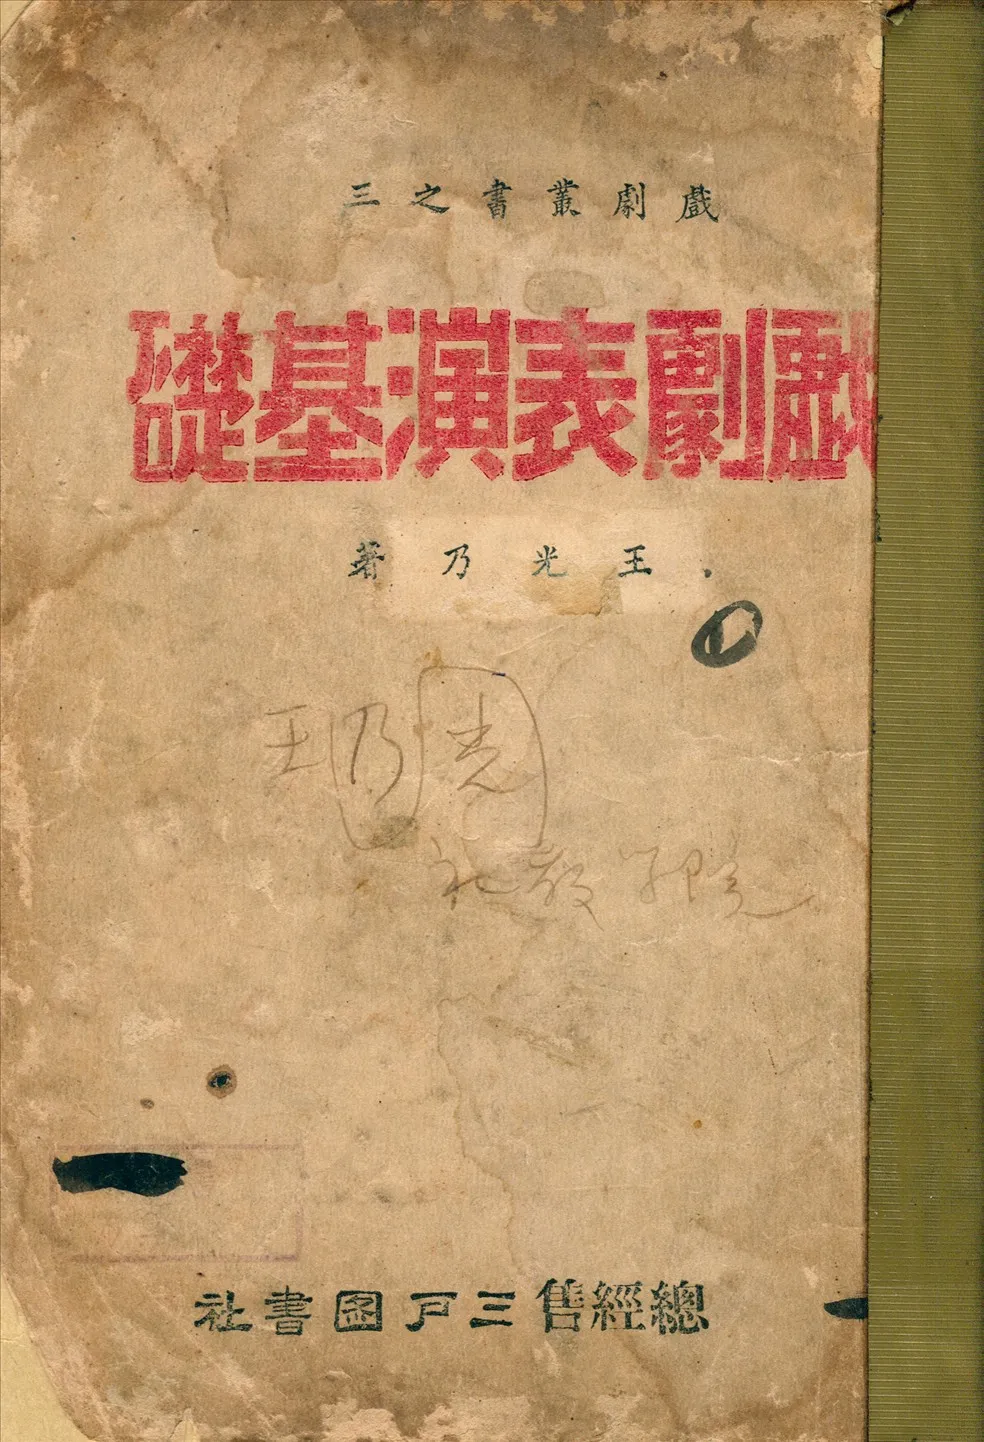 戲劇叢書之三
戲劇表演基礎
王光乃著
王乃光
社教學院
總經售三戶圖書社